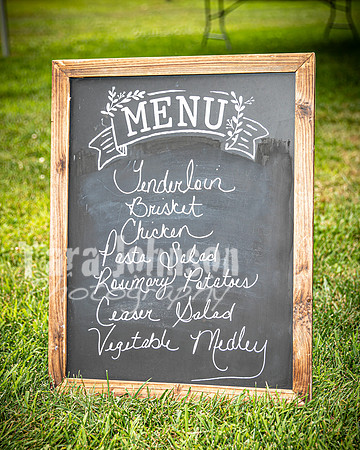 MENU
Tenderloin
Brisket
Chicken
Pasta Salad
Tara Johnson
Photography
Rosemary Potatoes
Ceaser Salad
Vegetable Medley